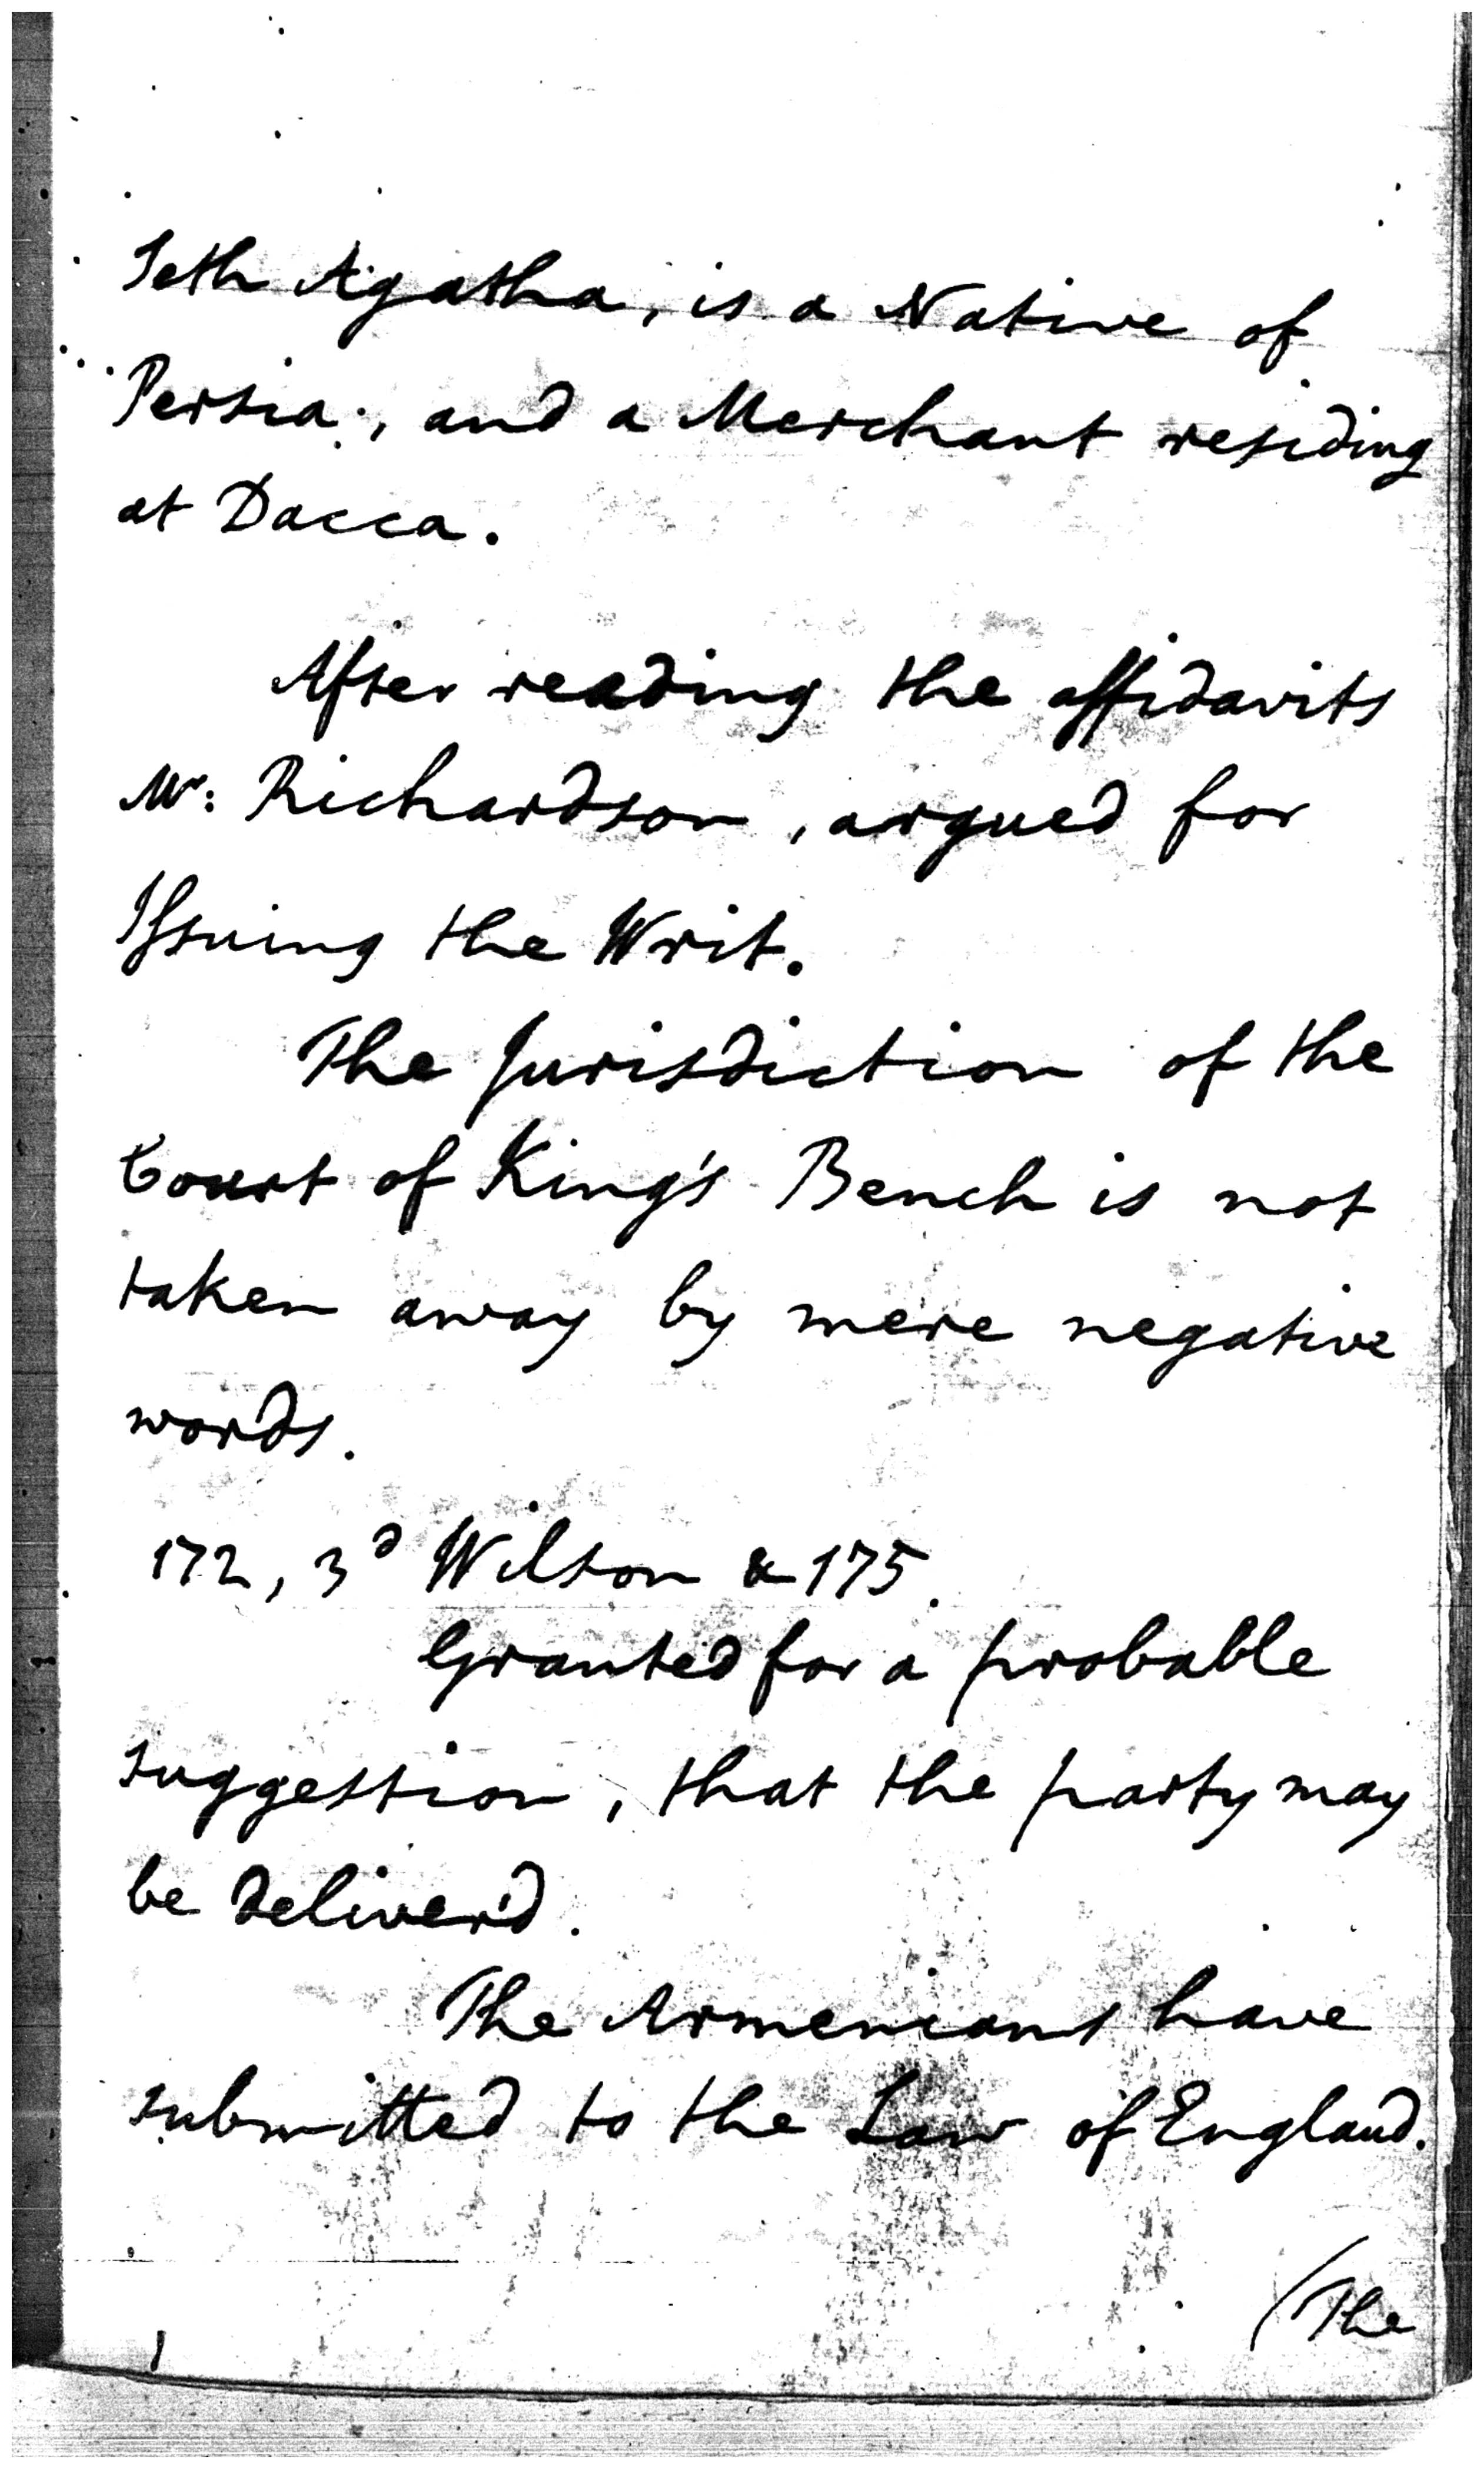 Seth Agatha, is a Native of
Persia, and a Merchant residing
at Dacca.
After reading the affidavits
Mr: Richardson, argued for
Issuing the Writ.
The Jurisdiction of the
Court of King's Bench is not
taken away by mere negative
words.
172, 3d Wilson & 175.
Granted for a probable
suggestion, that the party may
be deliver'd.
The Armenians have
submitted to the Law of England.
(The